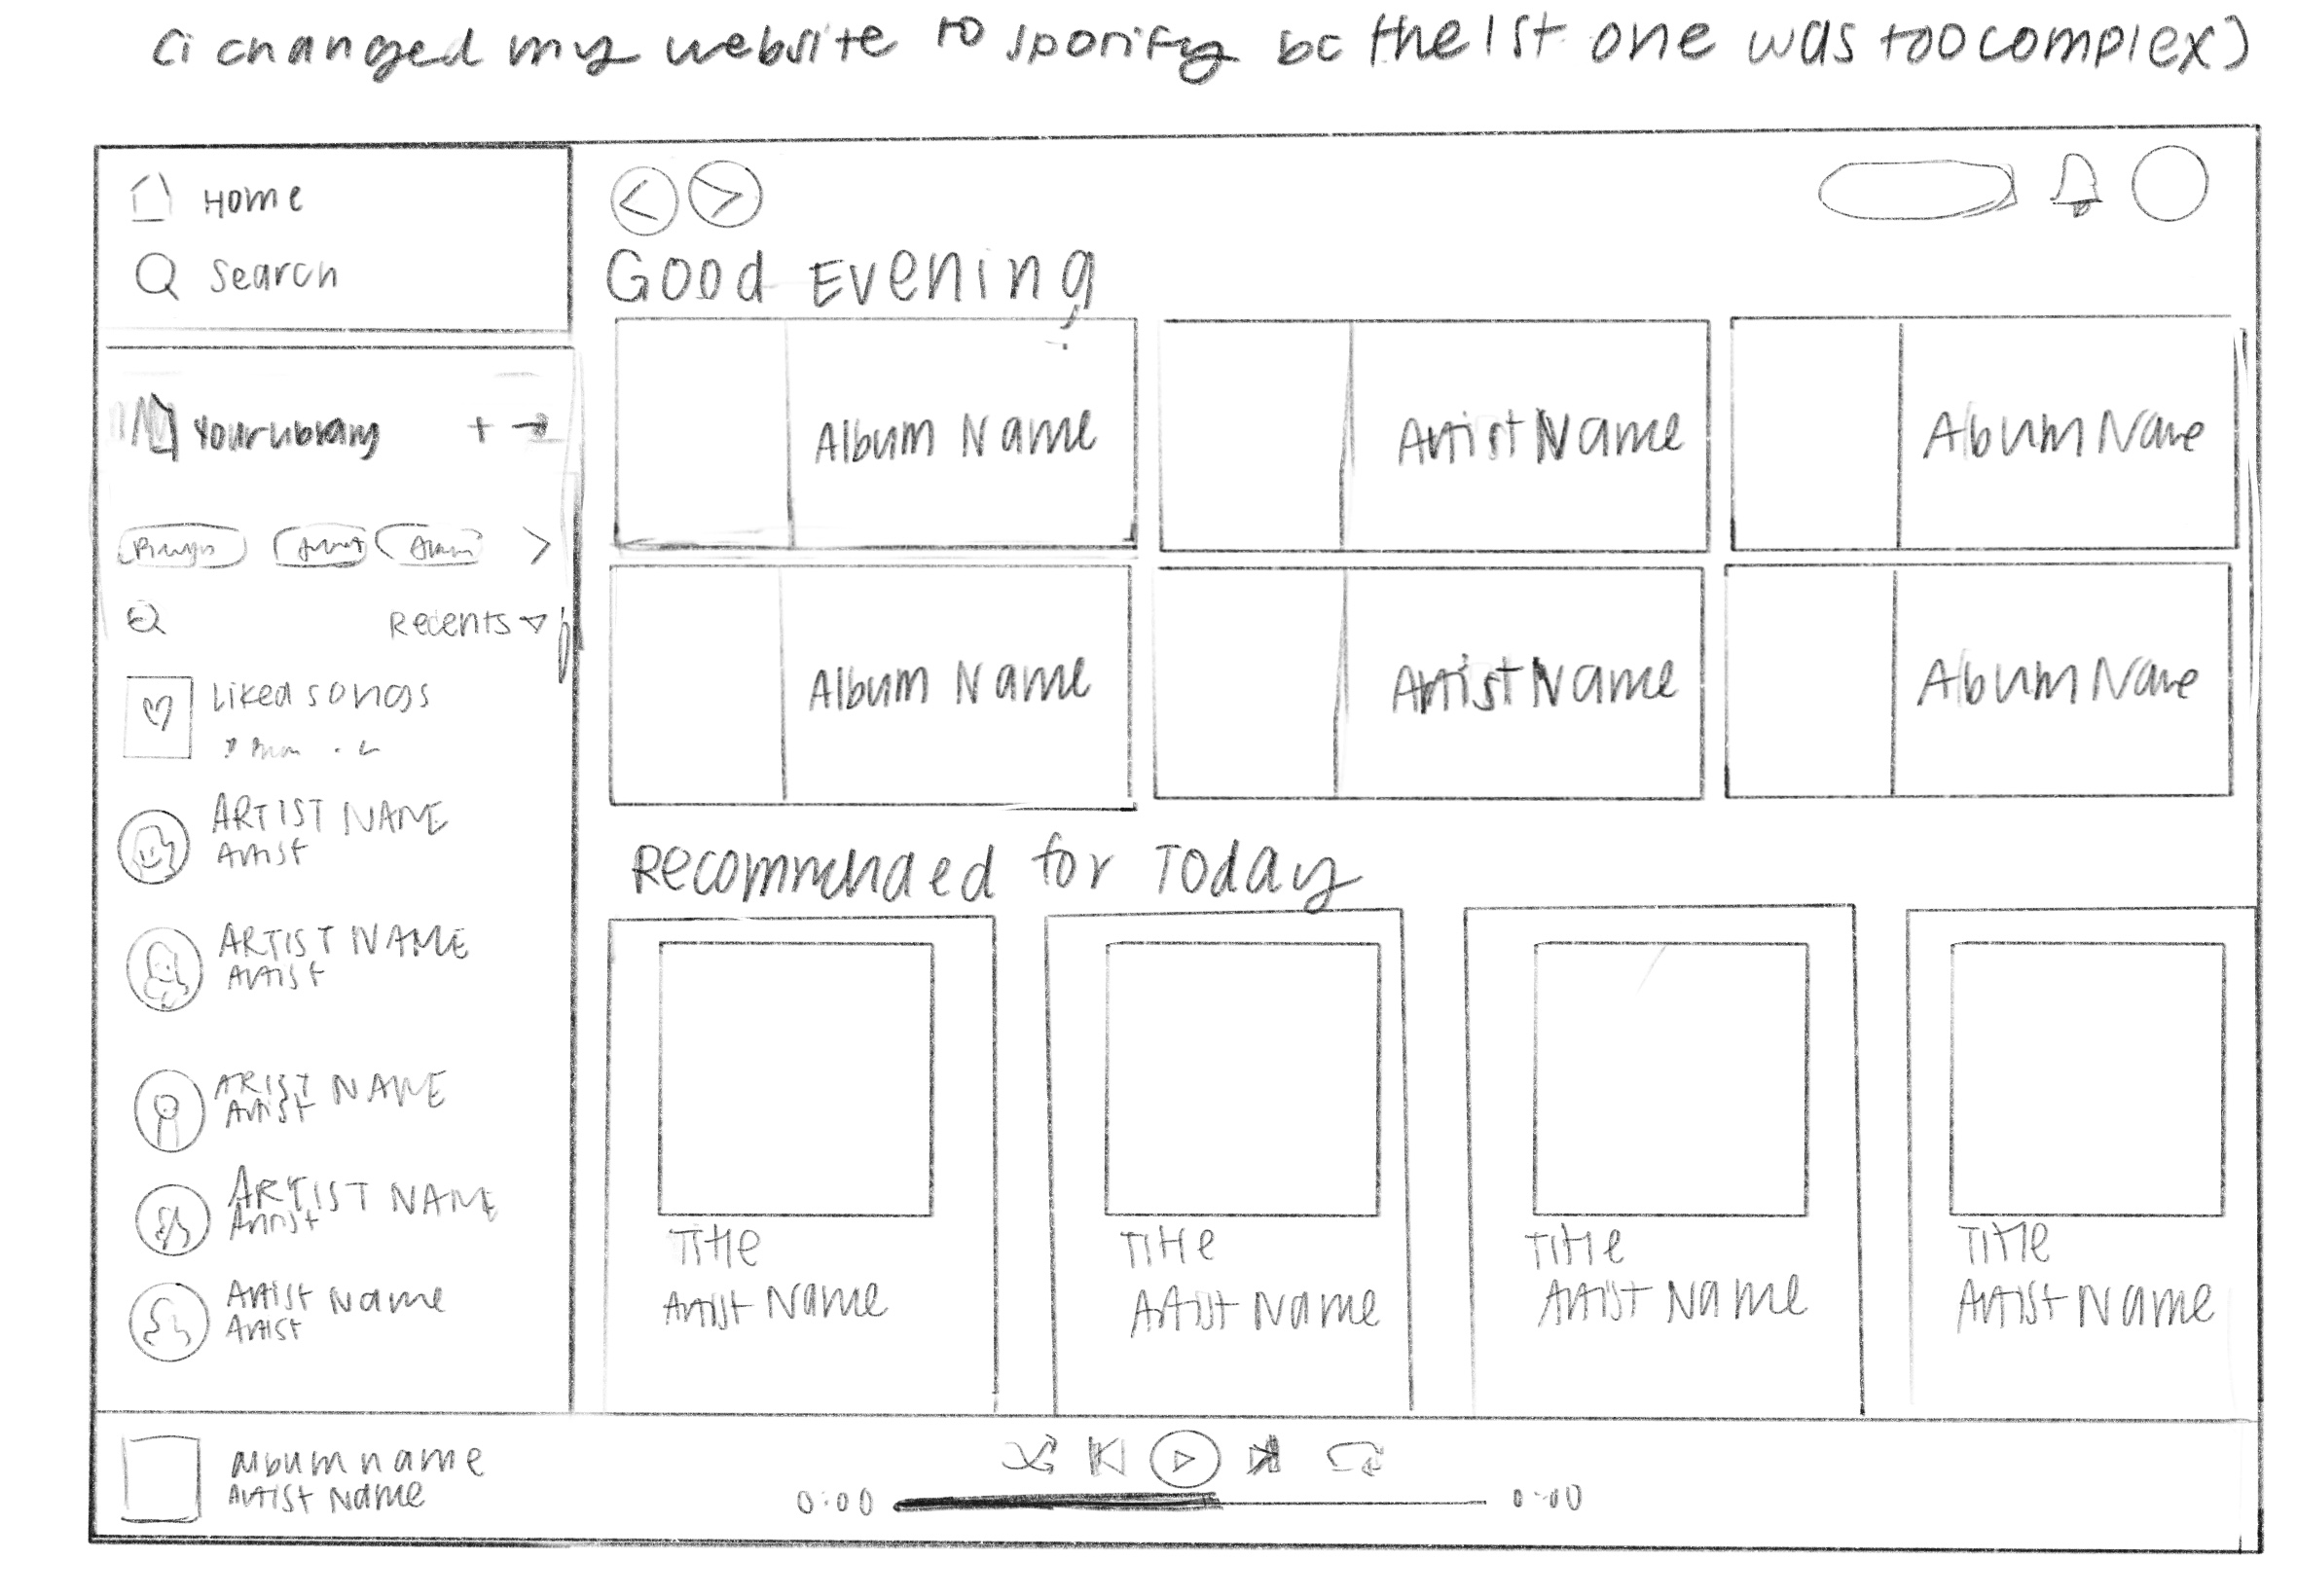 (i changed my website to spotify bc the 1st one was too complex)
Home
Search
Your library + →
Recents
Liked songs
ARTIST NAME
Artist
ARTIST NAME
Artist
ARIST NAME
Artist
ARTIST NAME
Artist
Artist Name
Artist
Good Evening
Album Name
Artist Name
Album Name
Album Name
Artist Name
Album Name
Recommended for Today
Title
Artist Name
Title
Artist Name
Title
Artist Name
Title
Artist Name
album name
Artist Name
0:00
0:00